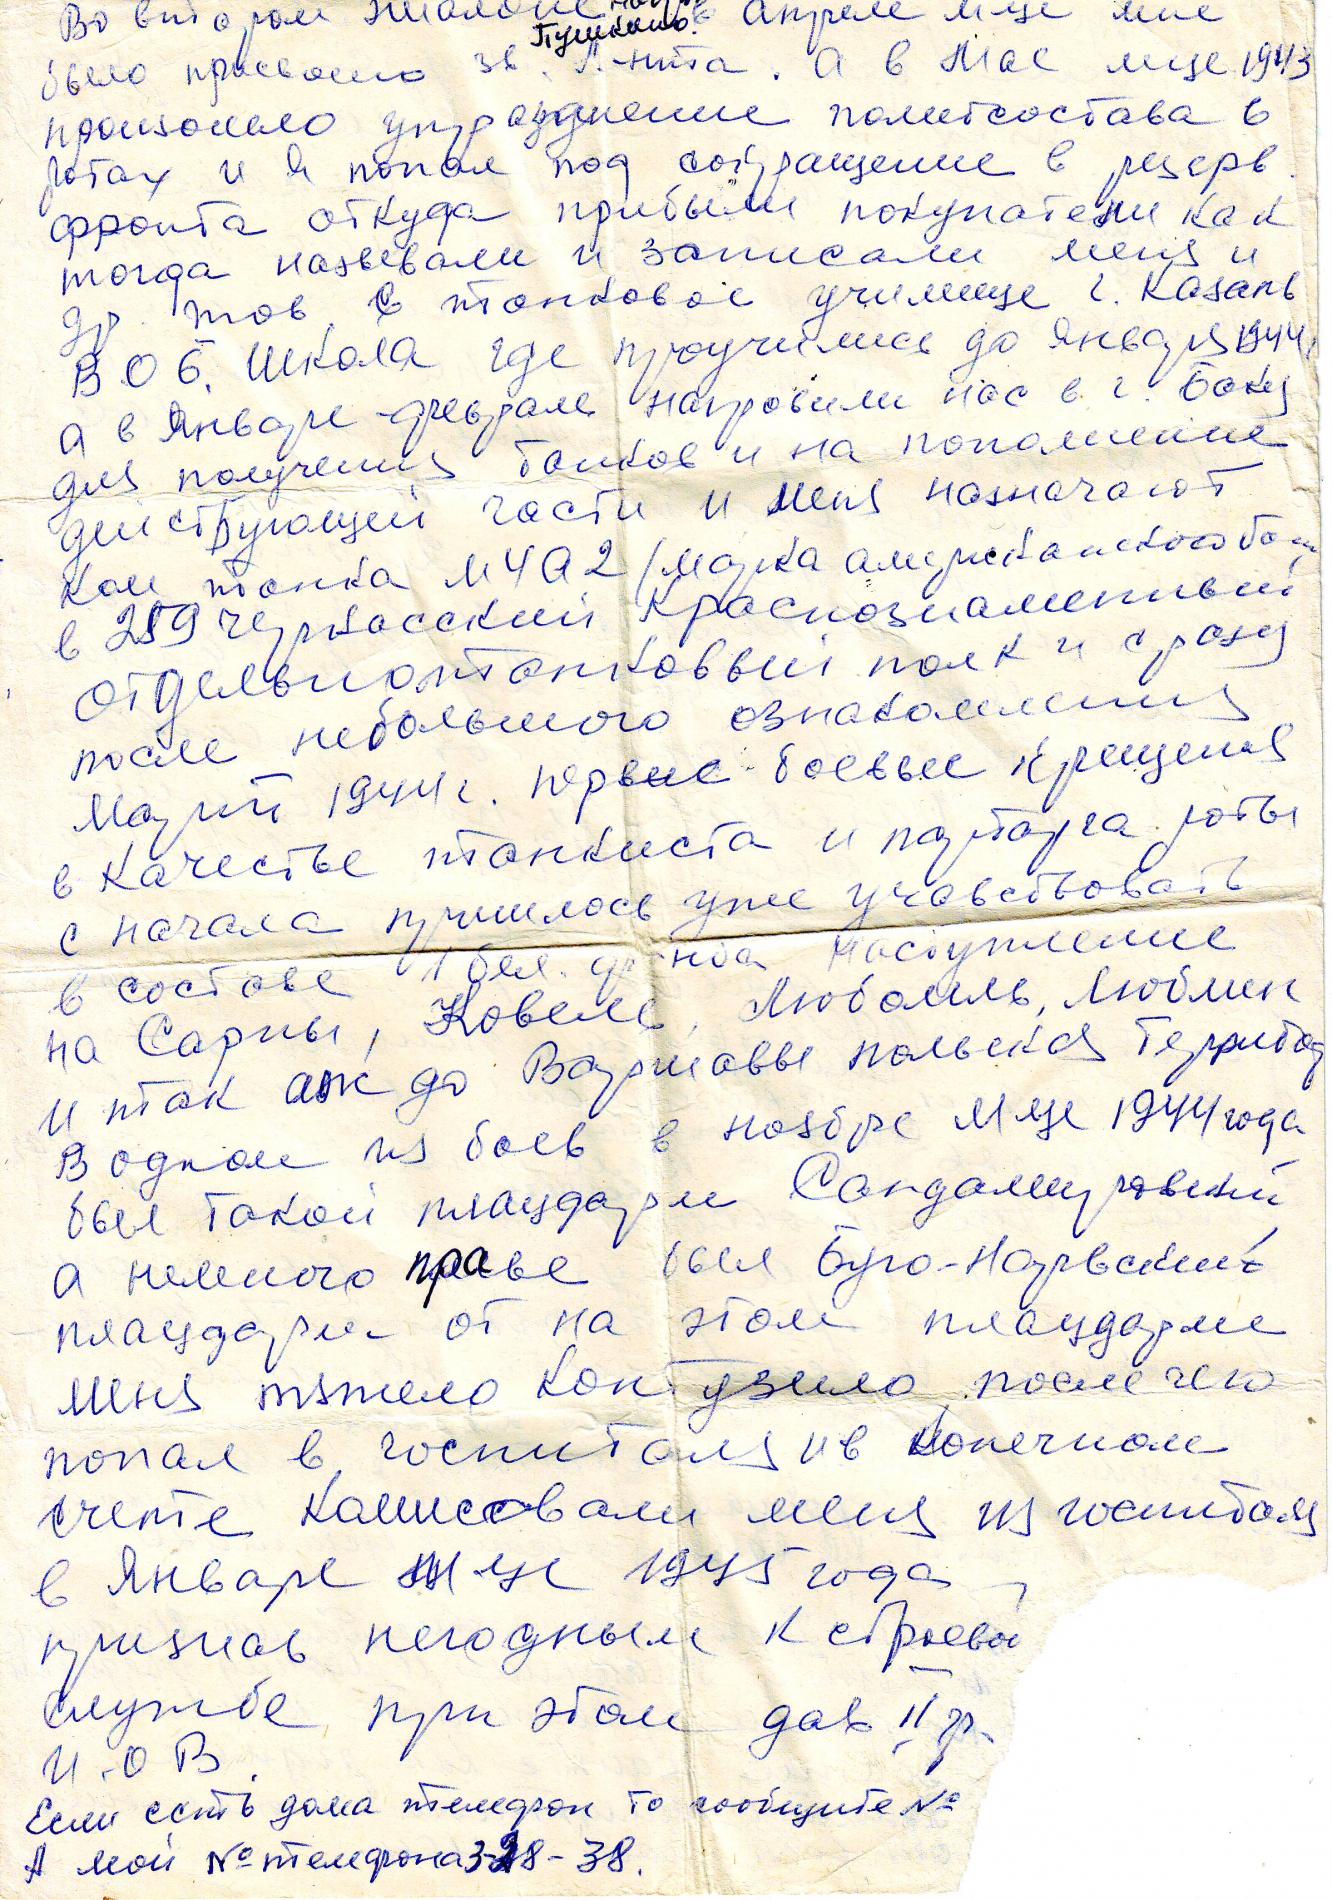 Во втором эшалоне в апреле м-це мне
Пушкино.
было присвоено зв. Л-нта. А в Мае м-це 1943
произошло упразднение политсостава в
ротах и я попал под сокращение в резерв
фронта откуда прибыли покупатели как
тогда назвевали и записали меня и
др. тов. в танковое училище г. Казань
В О Б. Школа где проучились до Января 1944
а в Январе-феврале направили нас в г. Баку
для получения танков и на пополнение
действующей части и меня назначают
ком танка М4А2 /марка американского
в 259 черкасский Краснознаменный
отдельнотанковый полк и сразу
после небольшого ознакомления
Март 1944 г. первые боевые крещения
в качестве танкиста и парторга роты
с начала пришлось уже учавствовать
в составе 1 бел. фронта наступление
на Сарны, Ковель, Любомль, Люблин
и так аж до Варшавы польская Территор
В одном из боев в ноябре м-це 1944 года
был такой плацдарм Сандамирский
а немного правее был Буго-Наревский
плацдарм от на этом плацдарме
меня тяжело контузило, после чего
попал в госпиталя и в конечном
счете комисовали меня из госпиталя
в Январе м-це 1945 года,
признав негодным к строевой
службе при этом дав II гр.
И.О В.
Если есть дома телефон то сообщите №
А мой № телефона 8-38.